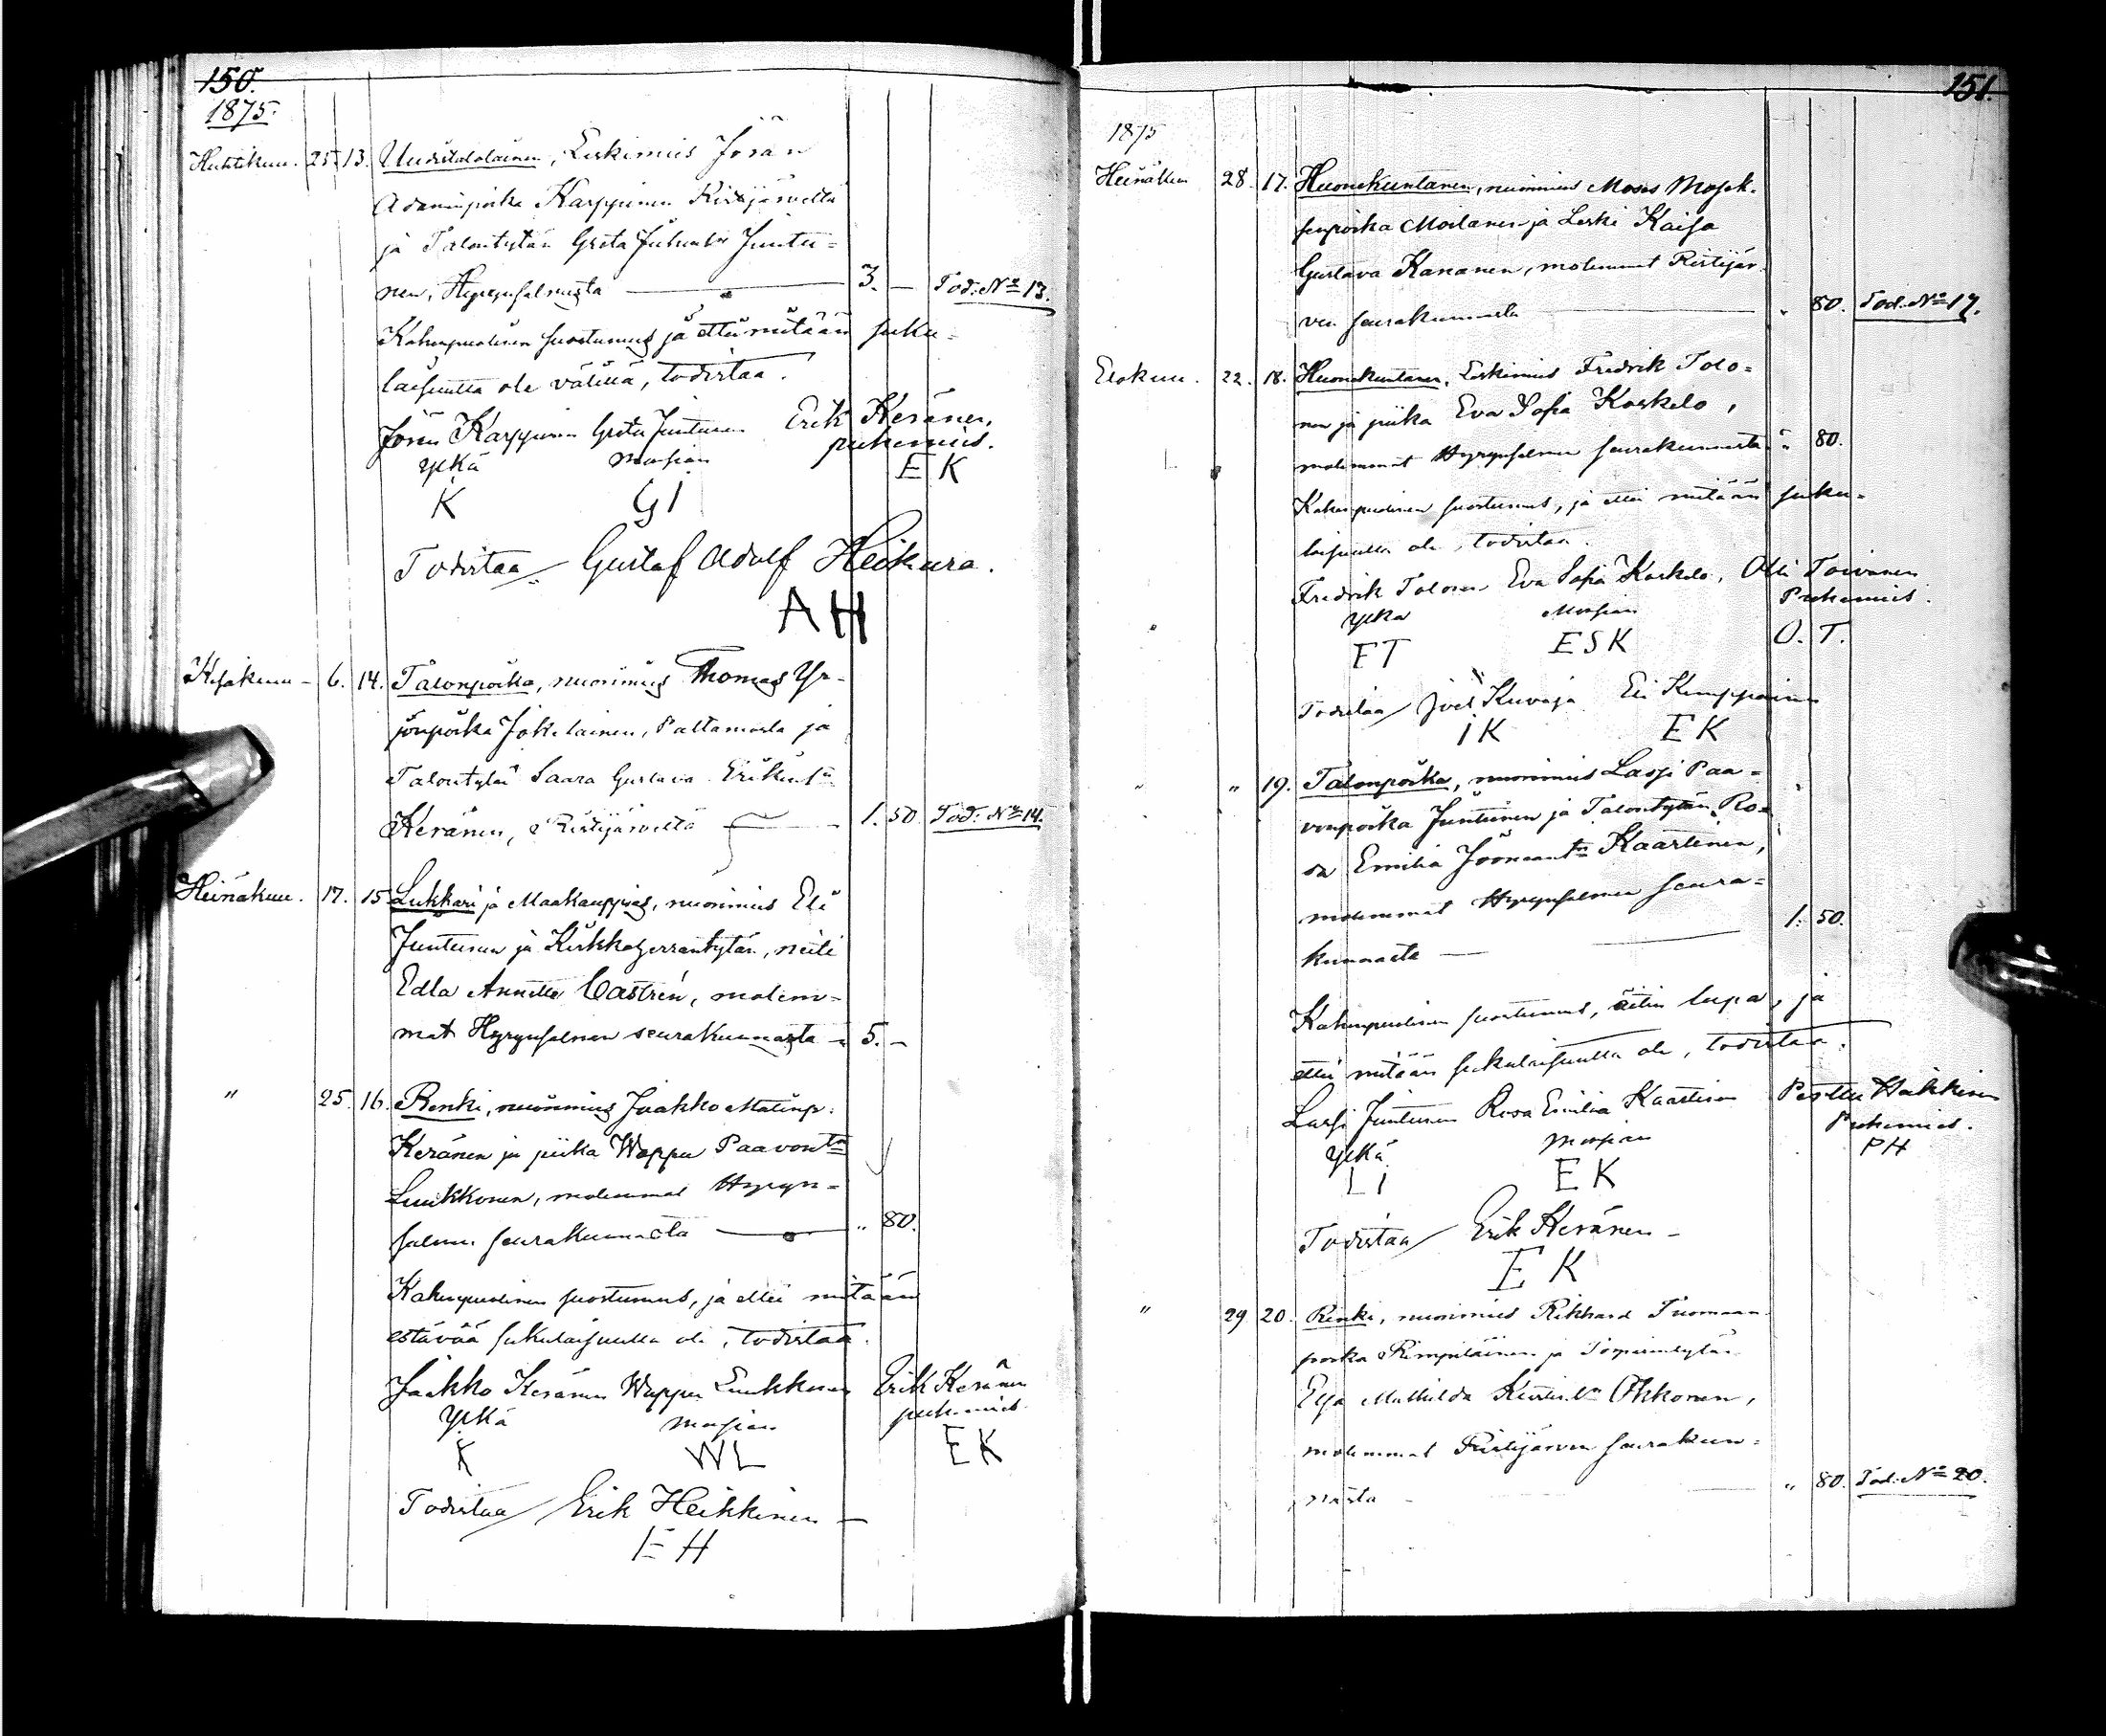 150.
1875.
Huhtikuu. 25. 13. Uudistalolainen, Leskimies Jöran
Adaminpoika Karppinen Ristijärveltä
ja Talontytär Greta Juhant^r Juntu=
nen, Hyrynsalmesta — 3. — Tod: N^o 13.
Kahenpuolisen suostumus ja ettei mitään suku=
laisuutta ole välillä, todistaa.
Jöran Karppinen Greta Juntunen Erik Keränen,
Ylkä Morsian puhemies.
K GJ E K
Todistaa Gustaf Adolf Heikura.
A H
Kesäkuu 6. 14. Talonpoika, nuorimies Thomas Yr-
jönpoika Jokelainen, Paltamosta ja
Talontytär Saara Gustava Erikint^r
Keränen, Ristijärveltä 1. 50. Tod: N^o 14.
Heinäkuu. 17. 15. Lukkari ja Maakauppias, nuorimies Eli
Juntunen ja Kirkkoherrantytär, neiti
Edla Annette Castrén, molem=
mat Hyrynsalmen seurakunnasta " 5. -
" 25. 16. Renki, nuorimies Jaakko Matinp:
Keränen ja piika Wappu Paavont^r
Luukkonen, molemmat Hyryn=
salmen seurakunnasta — " 80.
Kahenpuolinen suostumus, ja ettei mitään
estävää sukulaisuutta ole, todistaa.
Jaakko Keränen Wappu Luukkonen Erik Keränen
Ylkä Morsian puhemies
K WL EK
Todistaa Erik Heikkinen —
E H
151.
1875
Heinäkuu 28. 17. Huonekuntanen, nuorimies Moses Mosek-
senpoika Moilanen ja Leski Kaisa
Gustava Kananen, molemmat Ristijär-
ven seurakunnasta " 80. Tod: N^o 17.
Elokuu. 22. 18. Huonekuntanen, Leskimies Fredrik Tolo=
nen ja piika Eva Sofia Koskelo,
molemmat Hyrynsalmen seurakunnasta " 80.
Kahenpuolinen suostumus, ja ettei mitään suku=
laisuutta ole, todistaa.
Fredrik Tolonen Eva Sofia Koskelo, Olli Toivonen
Ylkä Morsian Puhemies.
FT ESK O. T.
Todistaa Joel Kuvaja Eli Kemppainen
IK EK
" " 19. Talonpoika, nuorimies Lassi Paa=
vonpoika Juntunen ja Talontytär Ro=
sa Emilia Joonaant^r Kaartinen,
molemmat Hyrynsalmen seura=
kunnasta — 1. 50.
Kahenpuolinen suostumus, äitin lupa, ja
ettei mitään sukulaisuutta ole, todistaa.
Lassi Juntunen Rosa Emilia Kaartinen Perttu Hakkinen
Ylkä Morsian Puhemies.
LJ EK PH
Todistaa Erik Keränen -
E K
" 29 20. Renki, nuorimies Rikhard Tuomaan-
poika Rimpiläinen ja
Mathilda Ohkonen,
molemmat Ristijärven seurakun=
nasta " 80. Tod: N^o 20.